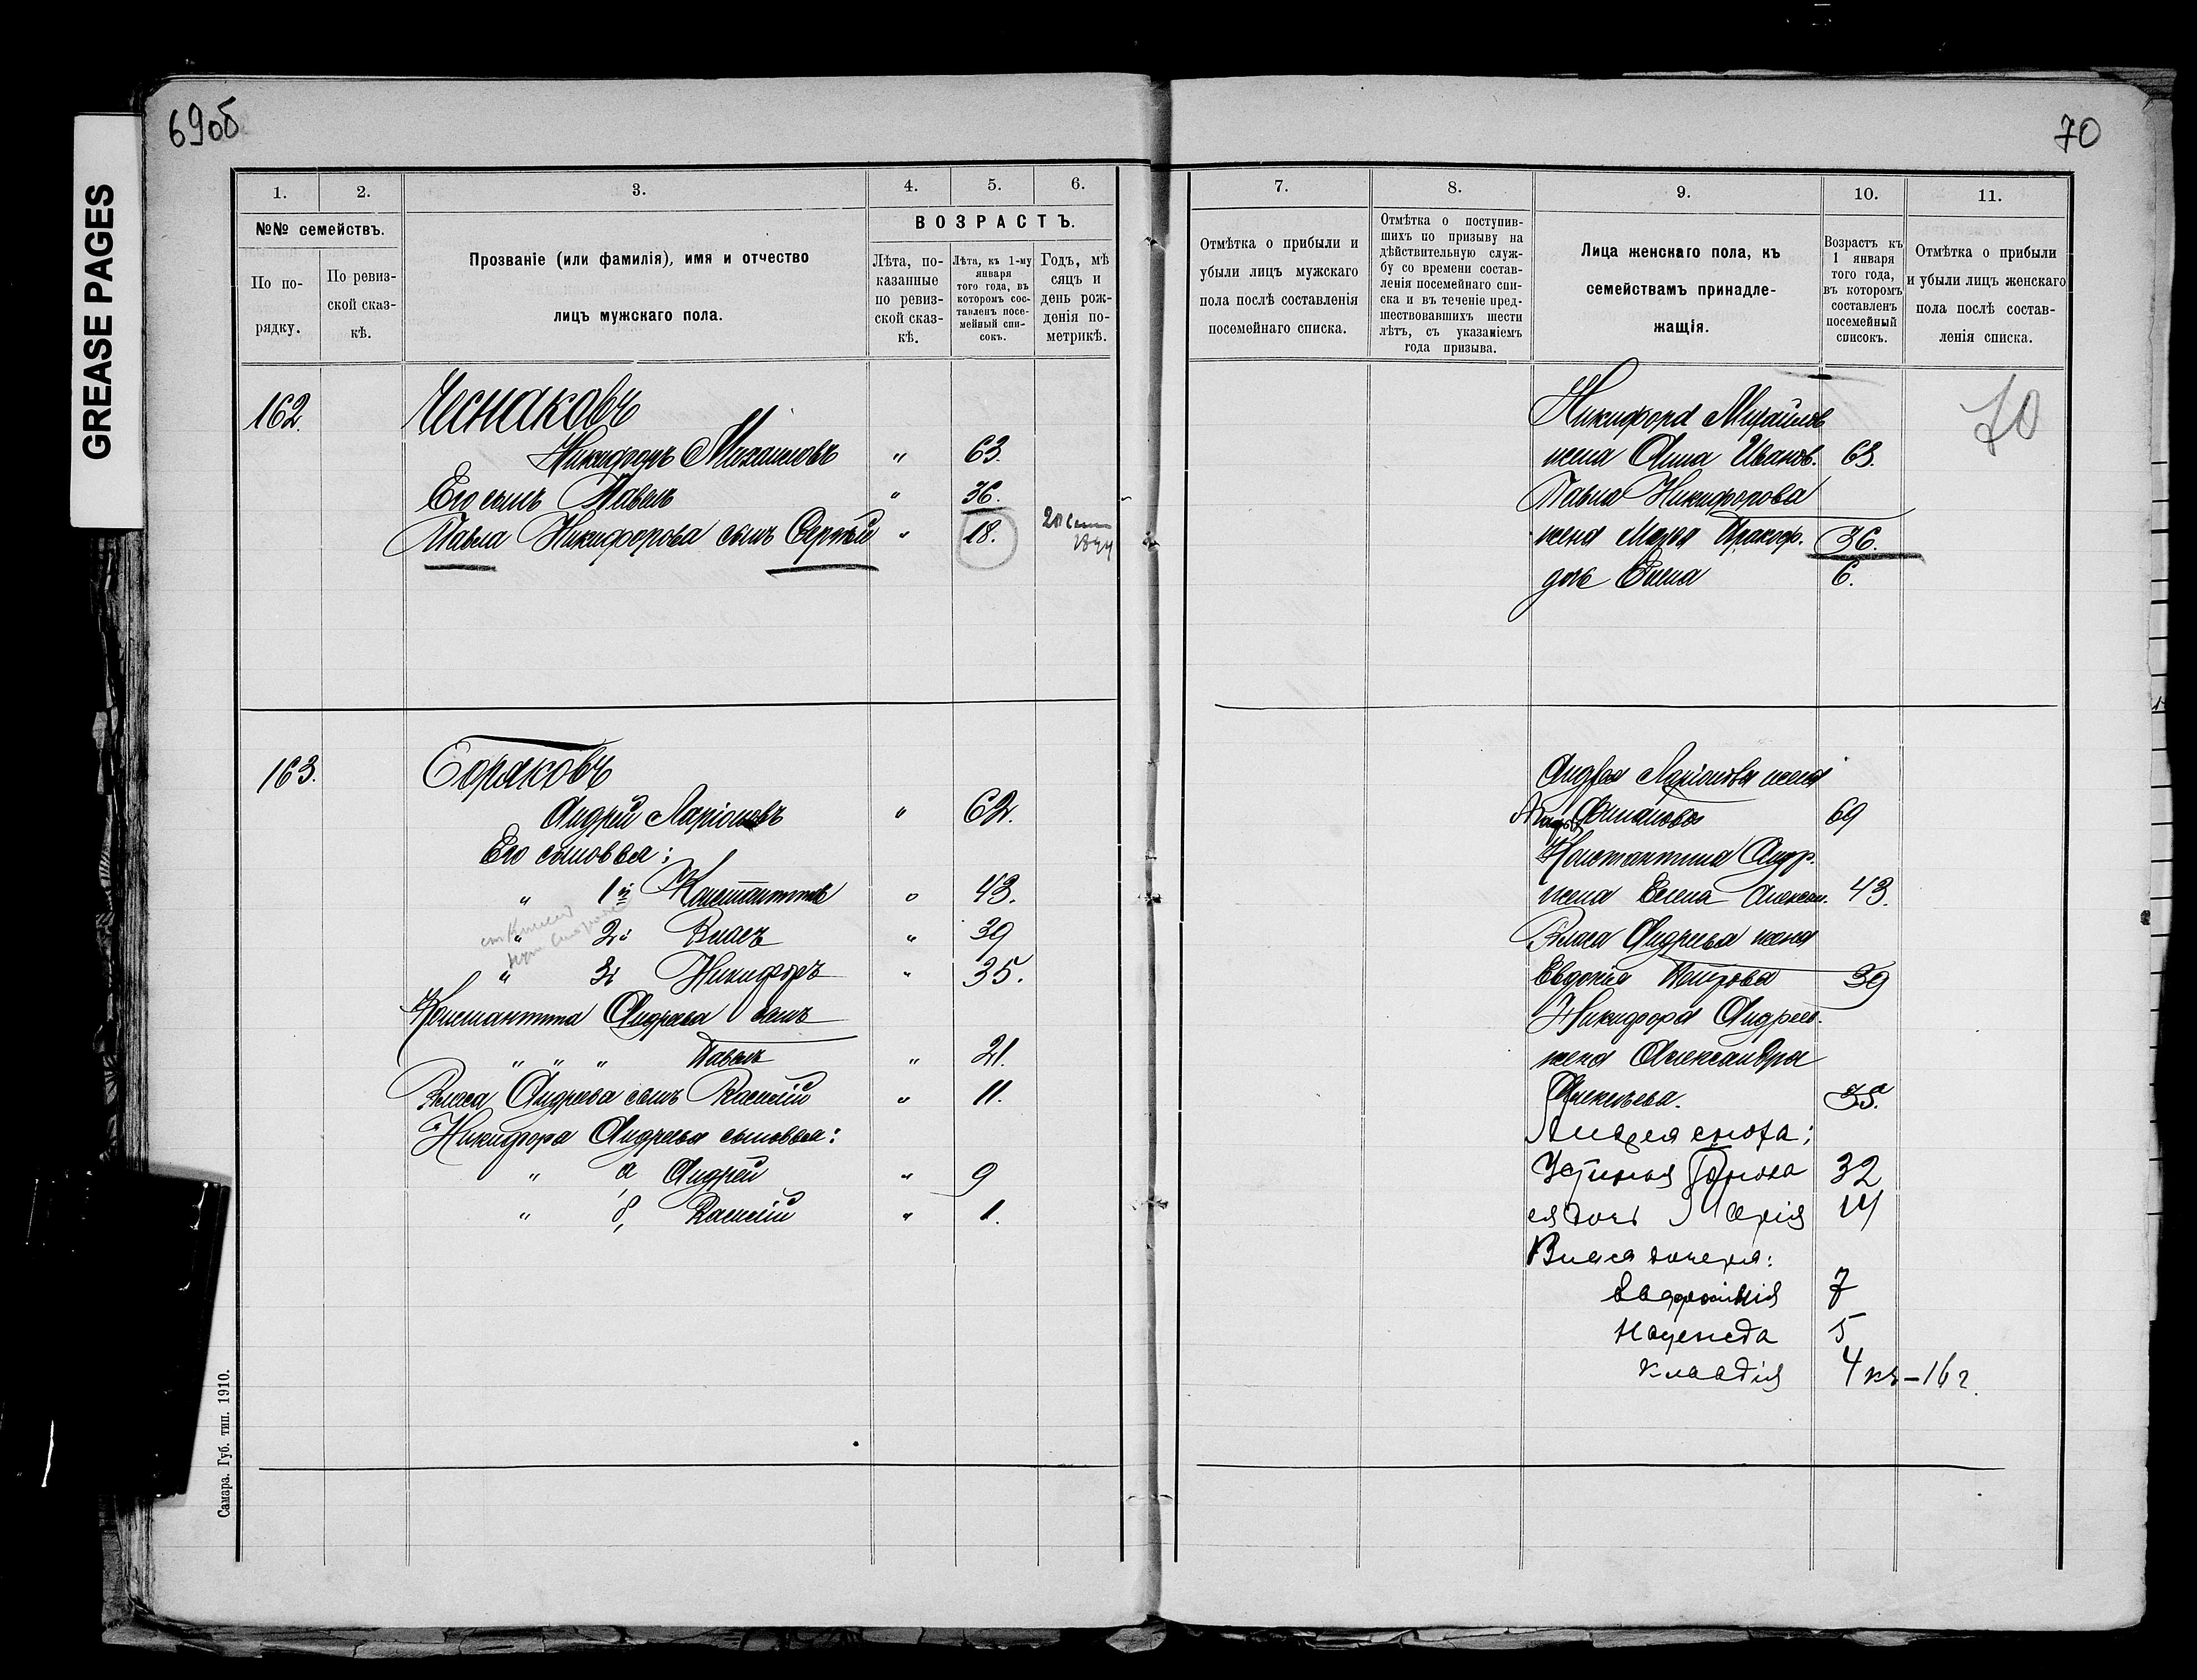 GREASE PAGES
69об
70
1.
2.
3.
4.
5.
6.
№№ семействъ.
По по-
рядку.
По ревиз-
ской сказ-
кѣ.
Прозваніе (или фамилія), имя и отчество
лицъ мужскаго пола.
ВОЗРАСТЪ.
Лѣта, по-
казанные
по ревиз-
ской сказ-
кѣ.
Лѣта, къ 1-му
января
того года, въ
которомъ сос-
тавленъ посе-
мейный спи-
сокъ.
Годъ, мѣ
сяцъ и
день рож-
денія по-
метрикѣ.
162.
Чеснаковъ
Никифоръ Михаиловъ " 63.
Его сынъ Павелъ " 36.
Павла Никифорова сынъ Сергѣй " 18.
163.
Соряковъ
Андрей Ларіоновъ " 62.
Его сыновья:
" 1й Константинъ " 43.
" 2й Власъ " 39
" 3й Никифоръ " 35.
Константина Андреева сынъ
" " " Павелъ " 21.
Власа Андреева сынъ Василій " 11.
Никифора Андреева сыновья:
" а, Андрей " 9
" б, Василій " 1.
Самара. Губ. тип. 1910.
7.
8.
9.
10.
11.
Отмѣтка о прибыли и
убыли лицъ мужскаго
пола послѣ составленія
посемейнаго списка.
Отмѣтка о поступив-
шихъ по призыву на
дѣйствительную служ-
бу со времени состав-
ленія посемейнаго спи-
ска и въ теченіе пред-
шествовавшихъ шести
лѣтъ, съ указаніемъ
года призыва.
Лица женскаго пола, къ
семействамъ принадле-
жащія.
Возрастъ къ
1 января
того года,
въ которомъ
составленъ
посемейный
списокъ.
Отмѣтка о прибыли
и убыли лицъ женскаго
пола послѣ состав-
ленія списка.
70
Никифора Михайлов
жена Анна Иванов. 63.
Павла Никифорова
жена Марья Прокоф. 36.
дочь Елена 6.
Андрея Ларіонова жена
69
Константина Андр.
жена Елена Алексан. 43.
Власа Андреева жена
Евдокія Петрова 39
Никифора Андреев.
жена Александра
Алексѣева. 35.
Андрея сноха:
Устинья 32
ея дочь Марія 14
Власа дочеря:
Евфросинія 7
Надежда 5
Клавдія 4 къ - 16 г.